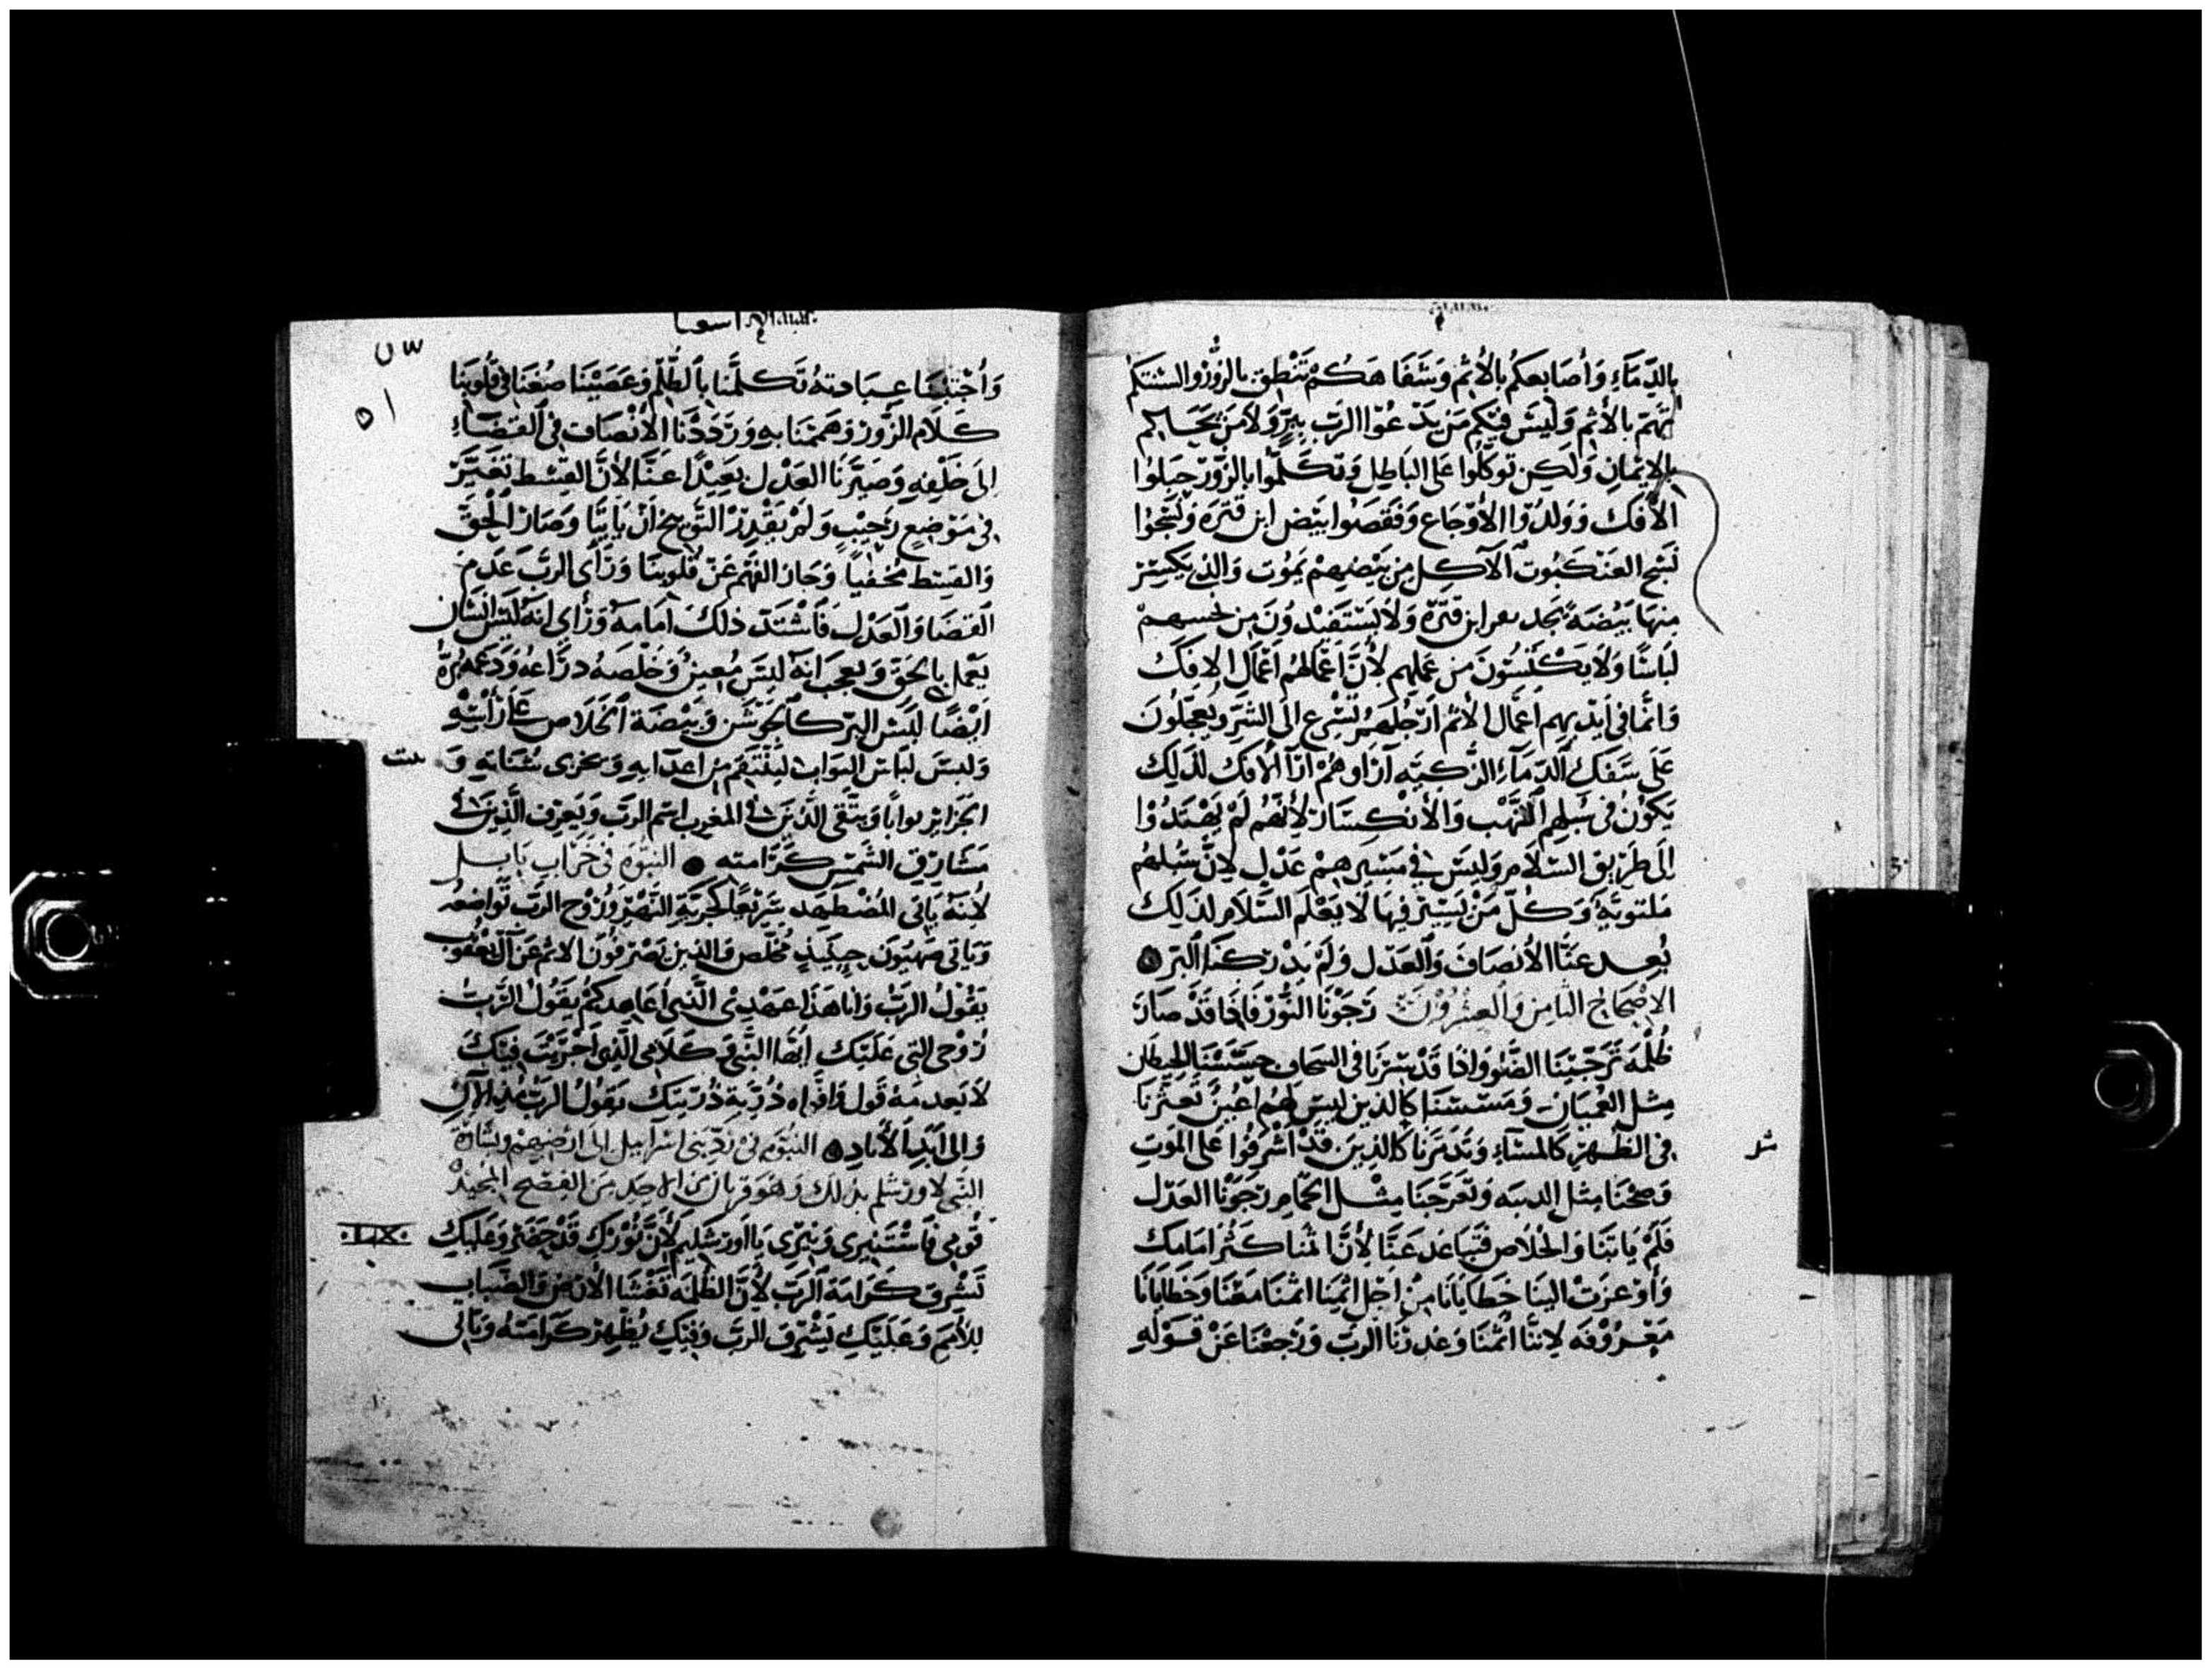 بِالدِّمَاءِ وَأصَابِعكُم بِالأثم وَشَفَا هَكُم تَنْطِق بالزُّوُرْ والسنتكم
تهتم بالأثم وَلَيسَ فيكم مَن يَدْعُوا الرَّبّ بِبِرٍّ وَلاَ مَنْ يحَاكم
بالايمَانِ وَلكِن توكَّلُوا عَلى البَاطِل وَتكَلَّمُوا بالزّوُر حبلوُا
الأفكَ وَوَلدُوا الأوْجَاع وَفَقصُوا بيَضَ ابن قترَه وَنَسَجُوا
نَسْج العَنكَبُوت الآكِل مِن بَيْضِهِمْ يَموُت وَالذِى يكَسِر
مِنهَا بَيْضَه يَجد ابن قترَة وَلاَ يَسْتَفيْدوُنَ مِن نسجهِمْ
لبَاسًا وَلاَ يَكْتَسُونَ مِن عَمَلِهِم لأنَّ أعْمَالهُم اعْمَال الافِكَ
وَانمَّا فى أيْدِيهم أعمَال الأثم أرجُلهُمْ تُسْرِع الى الشَّر وَيُعَجِّلُونَ
عَلَى سَفكِ الدّمَآءِ الزَّكِيَّه آرَاوهُمْ ارَآ الأفك لذَلِكَ
يَكوُنُ فى سُبلِهِم النَّهْب وَالأنْكِسَار لأنهَّمُ لَمْ يَهْتَدُوْا
اِلَى طَريق السّلاَم وَليسَ فى مَسِيرهم عَدْلٍ لاِنَّ سُبُلهُم
مَلتويَّةٍ وَكُلّ مَنْ يَسِير فِيهَا لاَ يَعْلَم السَّلاَم لذَلِكَ
بُعِد عَنَّا الأنصَاف وَالعَدْل وَلَمْ يَدْركنَا البّر
الاصْحَاح الثامِن وَالعِشْرُوْنَ رَجَوْنَا النُّوْر فَاِذَا قَدْ صَارَ
ظُلْمَة تَرَجَّيْنَا الضَّوْ وَاذَا قَدْ سِرْنَا فى السحَاب حسَّسْنَا الحِيطان
مِثل العُميَان وَمَسَسْنَا كالذين ليسَ لهُم أعْينٌ تَعثّرْنَا
فى الظَّهِيرة كَالمسَآءِ وَتَدَمَرنَا كَالذِينَ قَدْ أشرفُوا عَلى الموَتِ
وَصِحْنَا مِثل الدببَه وَتفَرَّجنَا مِثْل الحمَام رَجَوْنَا العَدْل
فَلَمْ يَا تِنَا وَالخلاَص فَتبَاعَد عَنّا لأنَّ اثمنا كثُر امَامك
وَأوْعزَتْ الينَا خَطَايَانَا مِنْ اجْل اثمنَا اثمنَا مَعَنَا وَخَطايَانا
مَعْرُوْفَه لانِنَّا أثمنَا وَغدرْنَا الربّ وَرَجعْنَا عَنْ قَوْلهِ
شر
اسعيا
٥١
وَأجْتنبنَا عِبَادتهُ تَكلَّمنَا بالظُّلم وَعَصَيْنَا صُغنَا فى قُلوبِنَا
كَلاَم الزّوُر وَهَممنَا بهِ وَرَدَدْنَا الأنْصَاف فى القضَآءِ
اِلى خَلْفِهِ وَصَيَّرنَا العَدْل بَعِيْدًا عَنّا لأنَّ القسْط تَغيَّرَ
فى مَوْضِعٍ رَحِيْبٍ وَلَم يَقْدِرْ التَّوبيخ انْ يَاتِيَا وَصَارَ الحَقّ
وَالقِسْط مخْفياً وَحَاز الفَهْم عَنْ قُلوبنَا وَرَأى الربّ عَدَم
القضَا وَالعَدْل فَاشْتَدّ ذلكَ أمَامهُ وَرَأى انهُ ليَسَ انسَان
يَعْمل بالحَقّ وَيعجب انهُ ليَسَ مُعِينٌ وَخلْصَهُ دزَاعهُ وَدَعمهُ بِرّهُ
ايْضًا لبسَ البِرّ كالجَوْشَن وَبَيْضَة الخَلاَص عَلَى رَأسِهِ
وَلبسَ لبَاسَ الثوَاب لينْتَقِم مِن اعدَايهِ وَيخزى شُنَاتهِ وَ
الجَزاير ثوَاباً وَيتَّقى الذّينَ فى المغرب اسم الربّ وَيَعرِف الَّذِينَ فى
مَشَارِق الشَّمس كَرَامته النبُوّه فى خَراب بَابِل
لأنهُ يَاتى المُضْطَهِد سَرِيْعًا كجَريَة النَّهْر وَرُوْح الربّ توَاضعُه
وَيَاتى صَهْيُون حِينَيذٍ مُخلّص وَالذِين يَصْرِفُون الاثم عَن آل يَعْقوُب
يَقوْلُ الرَبّ وَانا هَذا عَهْدِى الَّتى أعَاهِدكُمْ يَقوُل الرَّبّ
رُوْحى التى عَلَيْكَ أيُّهَا النَّبى وَكَلامى الّذِى أجْرَيْتُ فيكَ
لا يَعدمهُ قَول وَافْوَاه ذُرّيةِ ذُرّيَتك يَقوُلُ الربُّ مِن الآن
وَالى أبَدِ الأبَادِ النبُوّه فى رَدّ بَنى اسْرَاييل الى ارْضِهِمْ وَبشَارَة
النبّى لاورشلم بذلك وَهُوَ قربَان الاحد من الفصْح المجيدْ
قوُمى فَاسْتَنِيرى وَنيرّى يَا اورَشَليم لأنّ نوْرَك قَدْ حَضَر وَعَليَكِ
تَشرق كَرَامَة الرَبّ لأنَّ الظُلمَه تَغْشَا الأرْض وَالضَّبَاب
لِلاُمَم وَعَلَيْكِ يَشْرِق الربّ وَفِيكِ يُظْهِرْ كَرامَتهُ وَيَاتى
·LX·